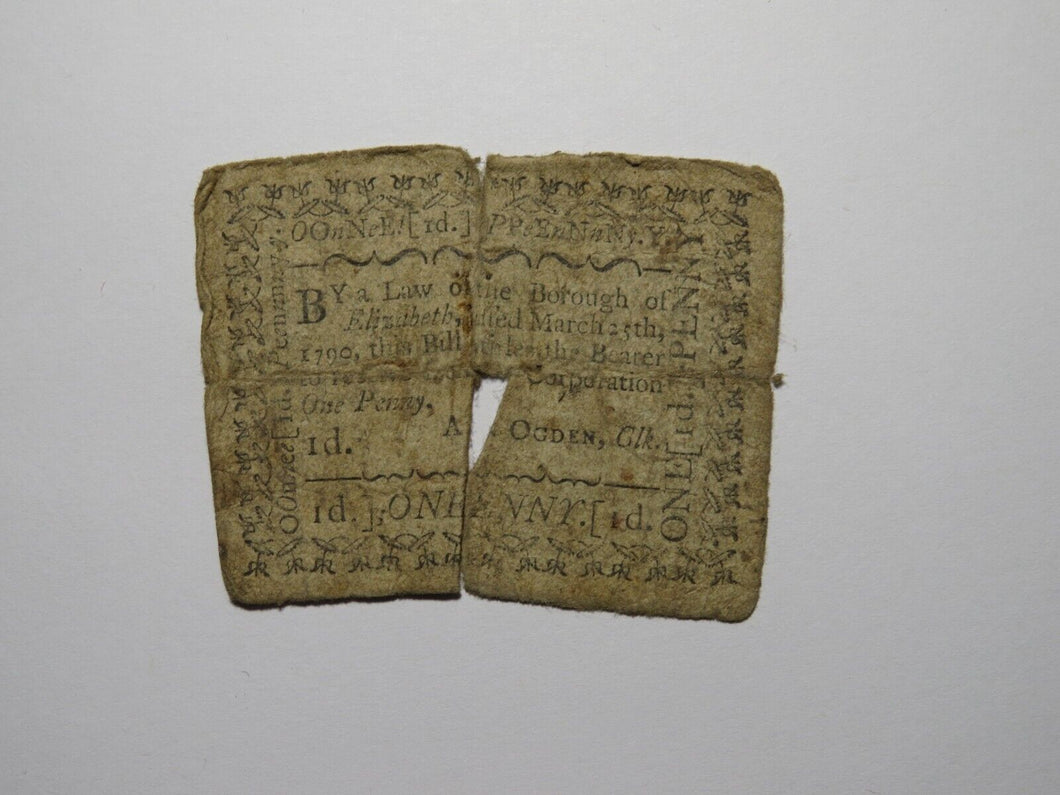 OOnNeE![1d.] PPeEnNnNy.Y
BY a Law of the Borough of
Elizabeth, assed March 25th,
1790, this Bill the Bearer
to Corporation
One Penny,
1d. A OGDEN, Clk.
1d.];ONE ENNY.[1d.
OOnnee[1d.
ONE[1d.]PENNY